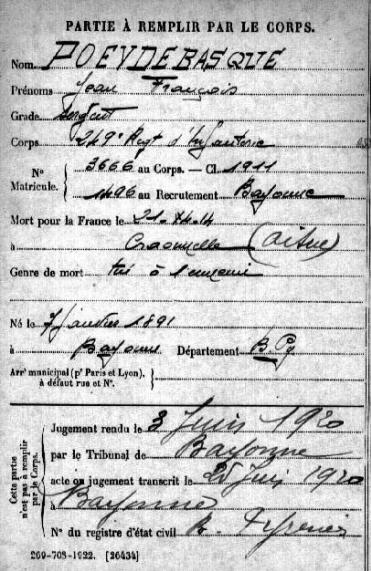 PARTIE À REMPLIR PAR LE CORPS.
Nom POEYDEBASQUE
Prénoms Jean François
Grade Sergent
Corps 249e Regt d'Infanterie
No Matricule. 3666 au Corps. — Cl. 1911
1496 au Recrutement Bayonne
Mort pour la France le 21
à Craonnelle (Aisne)
Genre de mort tué à l'ennemi
Né le 7 janvier 1891
à Bayonne Département B Py
Arrt municipal (pr Paris et Lyon),
à défaut rue et No.
Cette partie n'est pas à remplir par le Corps.
Jugement rendu le 3 Juin 1920
par le Tribunal de Bayonne
acte ou jugement transcrit le 25 Juin 1920
à Bayonne
No du registre d'état civil
269-708-1922. [26434]